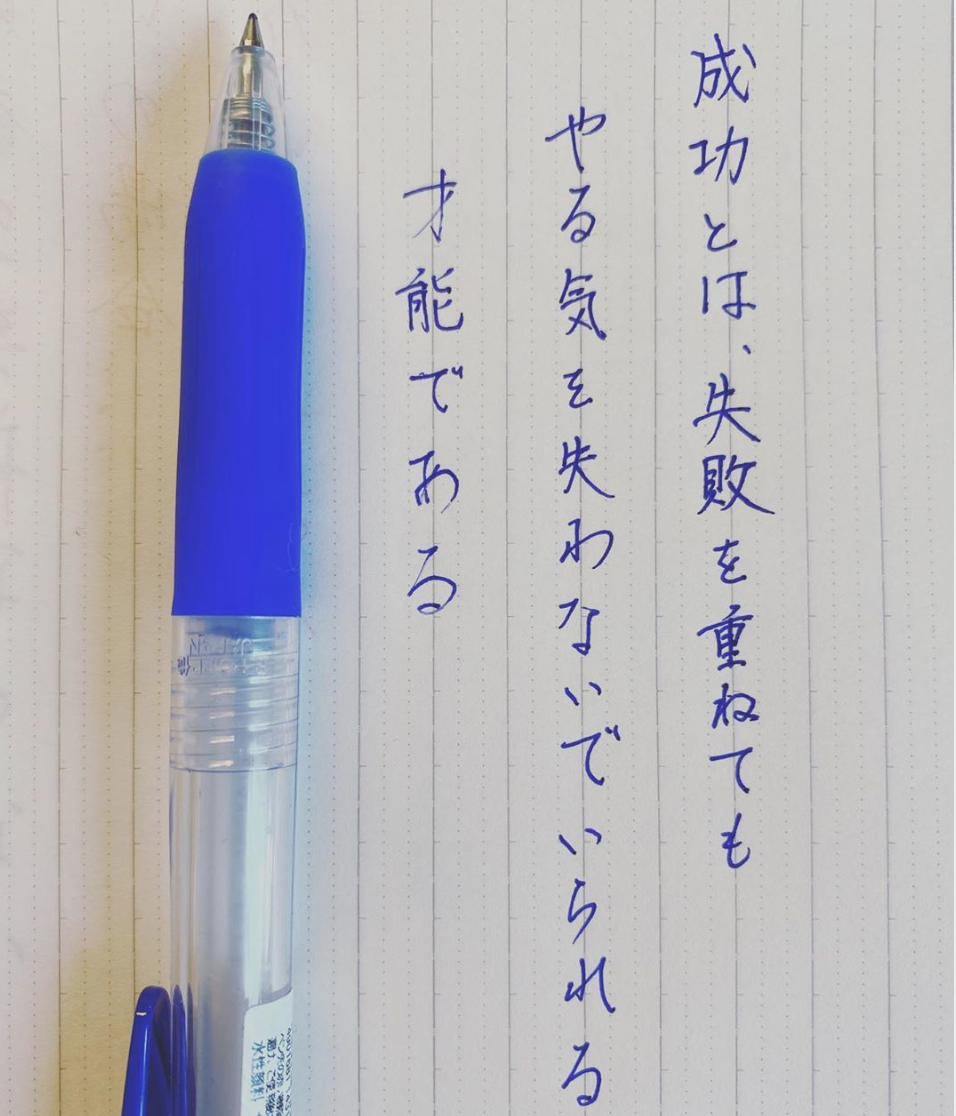 成功とは、失敗を重ねても
やる気を失わないでいられる
才能である
水性顔料